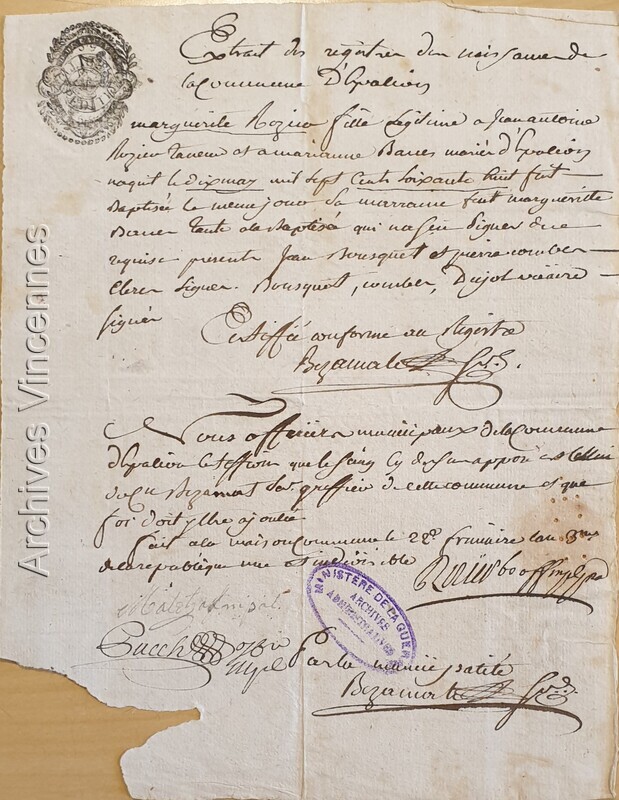 Extrait des registres des naissances de
la Commune D'Espalion
marguerite Rozier fille legitime a Jean antoine
Rozier taneur et a marianne Bances mariés d'Espalion
naquit le dix may mil sept cents soixante huit fut
Baptisée le meme jour sa marraine fut marguerite
Bances tante a la Baptisée qui na seu signer de ce
requise presents Jean Bousquet et pierre comber
Clercs signes. Bousquet, comber, vicaire
signés
Certiffié conforme au Registre
Bezamat
Nous officiers municipaux de la Commune
d'Espalion attestons que le seing cy dessus apposé est celluy
du Cn Bezamat greffier de cette commune et que
foi doit y etre ajoutée
fait a la maison Commune le 22e frimaire lan 3me
de la republique une et indivisible
off mpal
Puech
Par la municipalité
Bezamat
MINISTERE DE LA GUERRE
ARCHIVES
ADMINISTRATIVES
Archives Vincennes